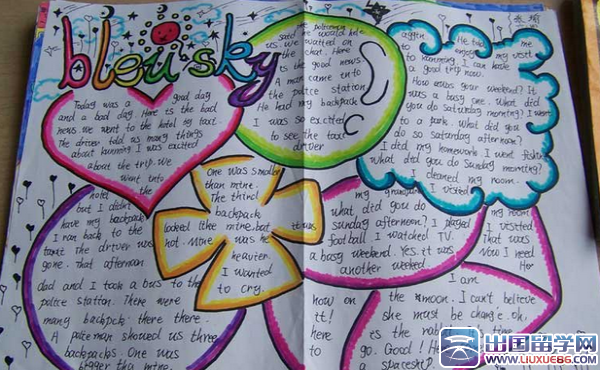 bleu sky
Today was a good day
and a bad day. Here is the bad
news. We went to the hotel by taxi.
The driver told us many things
about kunming I was excited
about the trip. We
went into
hotel the
but I didn't
have my backpack
I ran back to the
taxi the driver was
gone. That afternoon
dad and I took a bus to the
police station. There were
many backpck. there there.
A pliceman showed us three
backpacks. One was
bigger tha mine.
One was smaller
than mine.
The third
backpack
looked like mine. bat it was
not. Mine was he
heavier.
I wanted
to cry.
the policeman
said he would help
us. we waited on
the chat. Here
is the good news
A man
came into
the police station
He had my backpack
I was so excited
to see the taxi
driver
again He
to enjoy my visit
to kunming. I can have
a good trip now.
How was your weekend? It
was a busy one. What did
you do saturday morning? I went
to a park. What did you
do so saturday afternoon?
I did my homework I went fishing
What did you do sunday morning?
I cleaned my room.
I visited
my grandpa
what did you do
sunday afternoon? I played
football I watched TV.
a busy weekend. Yes. it was
another weekend.
my room
I visited
That was
Now I need
I am
the moon. I can't believe
she must be change. ok.
how on
it!
here
to
is the
go. Good! He
a spaceship.
出国留学网
www.liuxue86.com